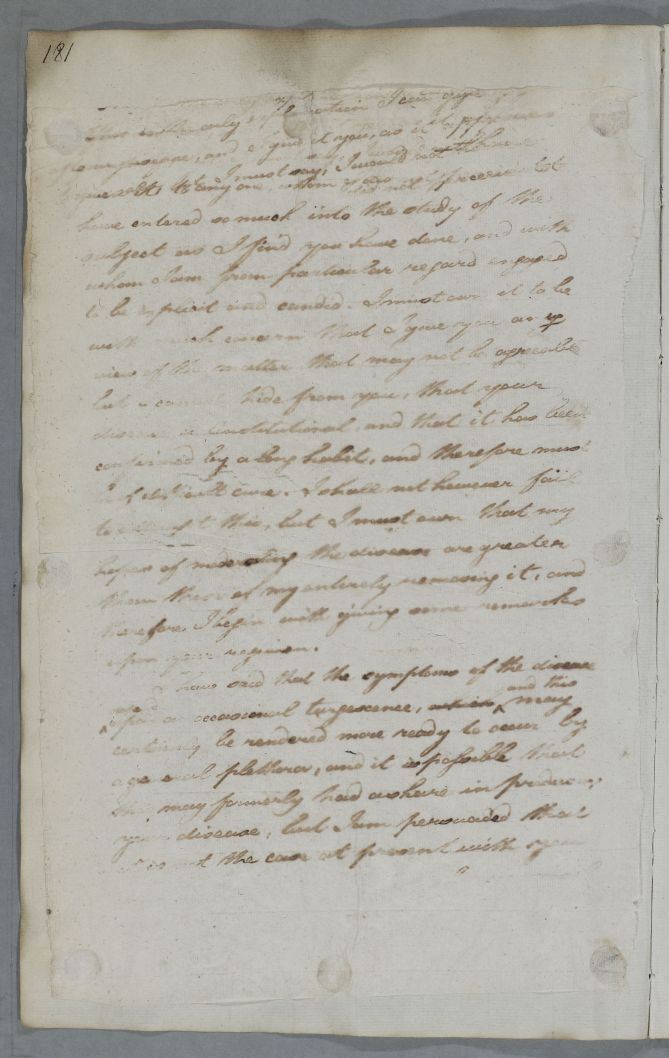 181
This is the only explication I can give
of your disease, and I give it you, as it appears
to me. I must say, I would not have
given it to any one, whom I did not perceive to
have entered so much into the study of the
subject as I find you have done, and with
whom I am from particular regard engaged
to be explicit and candid. I must own it to be
with much concern that I give you any
view of the matter that may not be agreeable
but I cannot hide from you, that your
disease is constitutional, and that it has been
confirmed by a long habit, and therefore must
be of difficult cure. I shall not however fail
to attempt this, but I must own that my
hopes of moderating the disease are greater
than those of my entirely removing it, and
therefore I begin with giving some remarks
upon your regimen.
I have said that the symptoms of the disease
upon an occasional turgescence, and this may
certainly be rendered more ready to occur by
a general plethora, and it is possible that
this may formerly had a share in producing
your disease, but I am persuaded that
is not the case at present with you